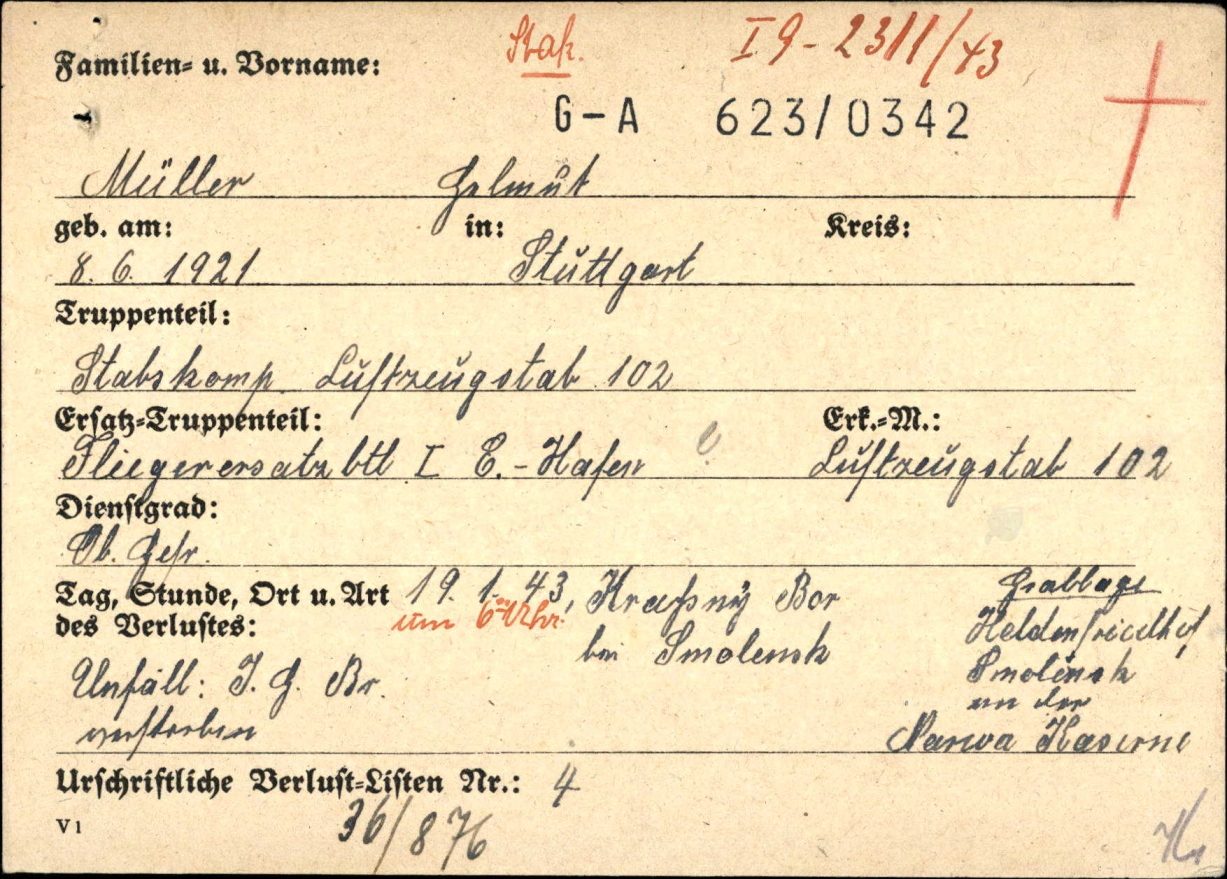 Familien- u. Vorname:
Stak. I 9 - 2311/43
G-A 623/0342
Müller Helmut
geb. am: in: Kreis:
8. 6. 1921 Stuttgart
Truppenteil:
Stabskomp. Luftzeugstab 102
Ersatz-Truppenteil: Erk.-M.:
Fliegerersatzbtl I E.-Hafen Luftzeugstab 102
Dienstgrad:
Ob. Gefr.
Tag, Stunde, Ort u. Art
des Verlustes:
19. 1. 43, Kraßny Bor
um 6 Uhr.
bei Smolensk
Unfall: I. G. Br.
verstorben
Grablage
Heldenfriedhof
Smolensk
an der
Narwa Kaserne
Urschriftliche Verlust-Listen Nr.: 4
V 1
36/876